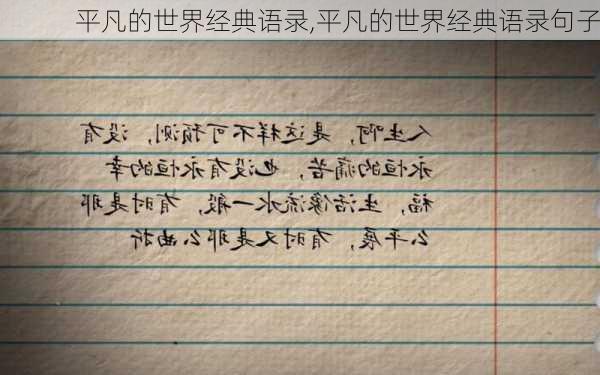 平凡的世界经典语录,平凡的世界经典语录句子
人生啊，是这样不可预测，没有
永恒的痛苦，也没有永恒的幸
福，生活像流水一般，有时是那
么平展，有时又是那么曲折